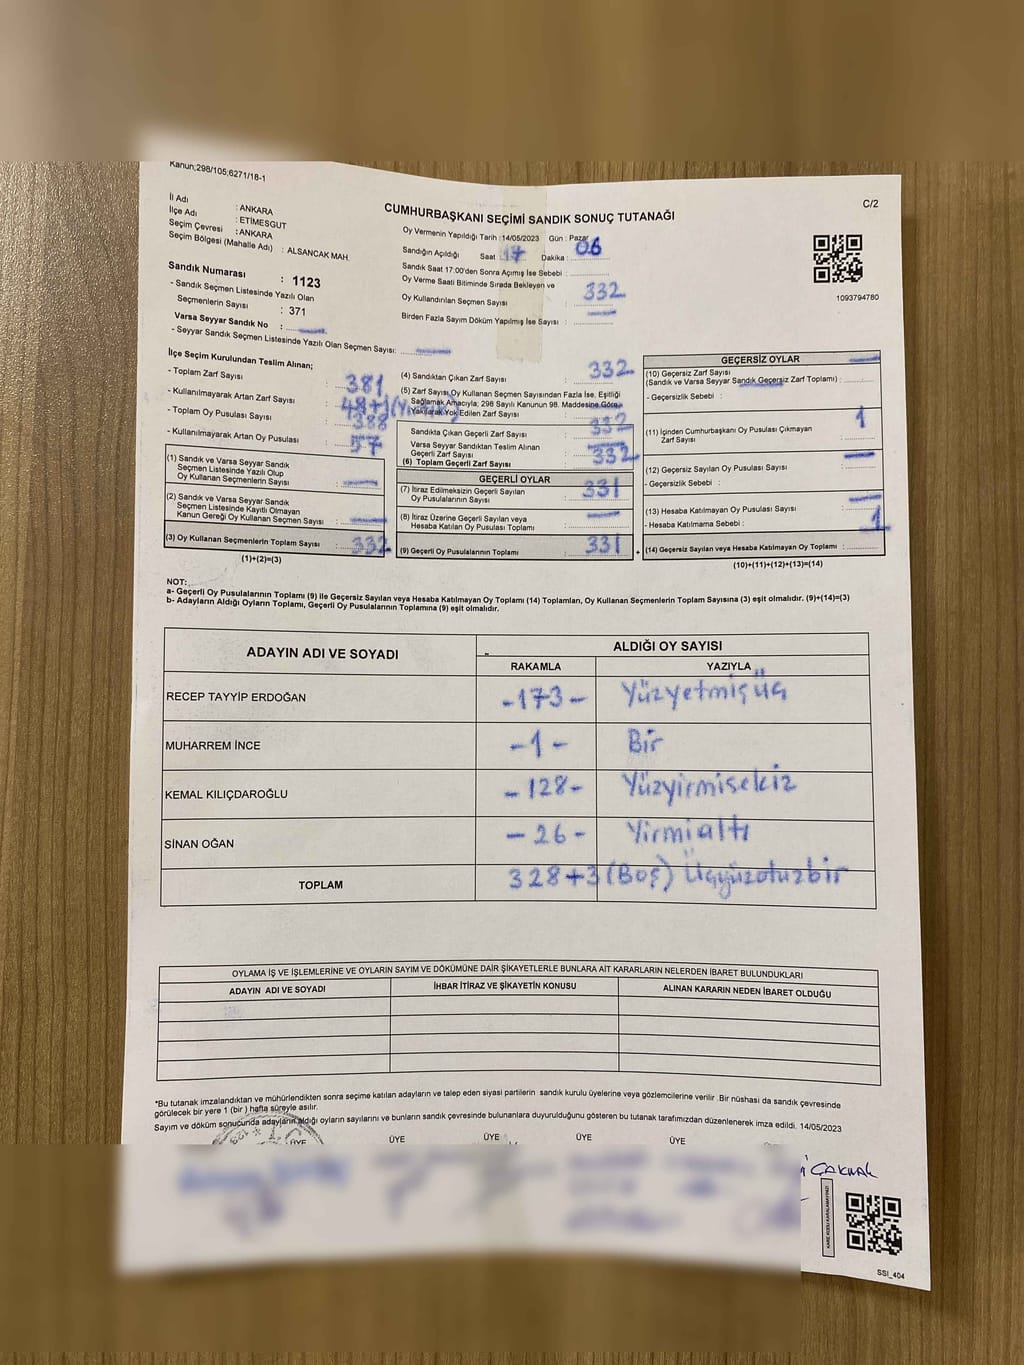 Kanun;298/105;6271/18-1
C/2
CUMHURBAŞKANI SEÇİMİ SANDIK SONUÇ TUTANAĞI
İl Adı : ANKARA
İlçe Adı : ETİMESGUT
Seçim Çevresi : ANKARA
Seçim Bölgesi (Mahalle Adı) : ALSANCAK MAH.
Sandık Numarası : 1123
- Sandık Seçmen Listesinde Yazılı Olan
Seçmenlerin Sayısı : 371
Varsa Seyyar Sandık No :
- Seyyar Sandık Seçmen Listesinde Yazılı Olan Seçmen Sayısı:
Oy Vermenin Yapıldığı Tarih :14/05/2023 Gün : Pazar
Sandığın Açıldığı Saat : 17 Dakika : 06
Sandık Saat 17:00'den Sonra Açımış İse Sebebi :
Oy Verme Saati Bitiminde Sırada Bekleyen ve
Oy Kullandırılan Seçmen Sayısı : 332
Birden Fazla Sayım Döküm Yapılmış İse Sayısı :
1093794780
İlçe Seçim Kurulundan Teslim Alınan;
- Toplam Zarf Sayısı : 381
- Kullanılmayarak Artan Zarf Sayısı : 48+1
- Toplam Oy Pusulası Sayısı : 388
- Kullanılmayarak Artan Oy Pusulası : 57
(1) Sandık ve Varsa Seyyar Sandık
Seçmen Listesinde Yazılı Olup
Oy Kullanan Seçmenlerin Sayısı :
(2) Sandık ve Varsa Seyyar Sandık
Seçmen Listesinde Kayıtlı Olmayan
Kanun Gereği Oy Kullanan Seçmen Sayısı :
(3) Oy Kullanan Seçmenlerin Toplam Sayısı : 332
(1)+(2)=(3)
(4) Sandıktan Çıkan Zarf Sayısı : 332
(5) Zarf Sayısı Oy Kullanan Seçmen Sayısından Fazla İse, Eşitliği
Sağlamak Amacıyla; 298 Sayılı Kanunun 98. Maddesine Göre
Yakılarak Yok Edilen Zarf Sayısı :
Sandıkta Çıkan Geçerli Zarf Sayısı : 332
Varsa Seyyar Sandıktan Teslim Alınan
Geçerli Zarf Sayısı :
(6) Toplam Geçerli Zarf Sayısı : 332
GEÇERLİ OYLAR
(7) İtiraz Edilmeksizin Geçerli Sayılan
Oy Pusulalarının Sayısı : 331
(8) İtiraz Üzerine Geçerli Sayılan veya
Hesaba Katılan Oy Pusulası Toplamı :
(9) Geçerli Oy Pusulalarının Toplamı : 331
+
GEÇERSİZ OYLAR
(10) Geçersiz Zarf Sayısı
(Sandık ve Varsa Seyyar Sandık Geçersiz Zarf Toplamı) :
- Geçersizlik Sebebi :
(11) İçinden Cumhurbaşkanı Oy Pusulası Çıkmayan
Zarf Sayısı : 1
(12) Geçersiz Sayılan Oy Pusulası Sayısı :
- Geçersizlik Sebebi :
(13) Hesaba Katılmayan Oy Pusulası Sayısı :
- Hesaba Katılmama Sebebi :
(14) Geçersiz Sayılan veya Hesaba Katılmayan Oy Toplamı : 1
(10)+(11)+(12)+(13)=(14)
NOT:
a- Geçerli Oy Pusulalarının Toplamı (9) ile Geçersiz Sayılan veya Hesaba Katılmayan Oy Toplamı (14) Toplamları, Oy Kullanan Seçmenlerin Toplam Sayısına (3) eşit olmalıdır. (9)+(14)=(3)
b- Adayların Aldığı Oyların Toplamı, Geçerli Oy Pusulalarının Toplamına (9) eşit olmalıdır.
ADAYIN ADI VE SOYADI ALDIĞI OY SAYISI
RAKAMLA YAZIYLA
RECEP TAYYİP ERDOĞAN -173- Yüzyetmişüç
MUHARREM İNCE -1- Bir
KEMAL KILIÇDAROĞLU -128- Yüzyirmisekiz
SİNAN OĞAN -26- Yirmialtı
TOPLAM 328+3 (Boş) Üçyüzotuzbir
OYLAMA İŞ VE İŞLEMLERİNE VE OYLARIN SAYIM VE DÖKÜMÜNE DAİR ŞİKAYETLERLE BUNLARA AİT KARARLARIN NELERDEN İBARET BULUNDUKLARI
ADAYIN ADI VE SOYADI İHBAR İTİRAZ VE ŞİKAYETİN KONUSU ALINAN KARARIN NEDEN İBARET OLDUĞU
*Bu tutanak imzalandıktan ve mühürlendikten sonra seçime katılan adayların ve talep eden siyasi partilerin sandık kurulu üyelerine veya gözlemcilerine verilir .Bir nüshası da sandık çevresinde
görülecek bir yere 1 (bir ) hafta süreyle asılır.
Sayım ve döküm sonucunda adayların aldığı oyların sayılarını ve bunların sandık çevresinde bulunanlara duyurulduğunu gösteren bu tutanak tarafımızdan düzenlenerek imza edildi. 14/05/2023
ÜYE ÜYE ÜYE ÜYE ÜYE
ÇAKMAK
KARE KODU KARALAMAYINIZ!
SSI_404